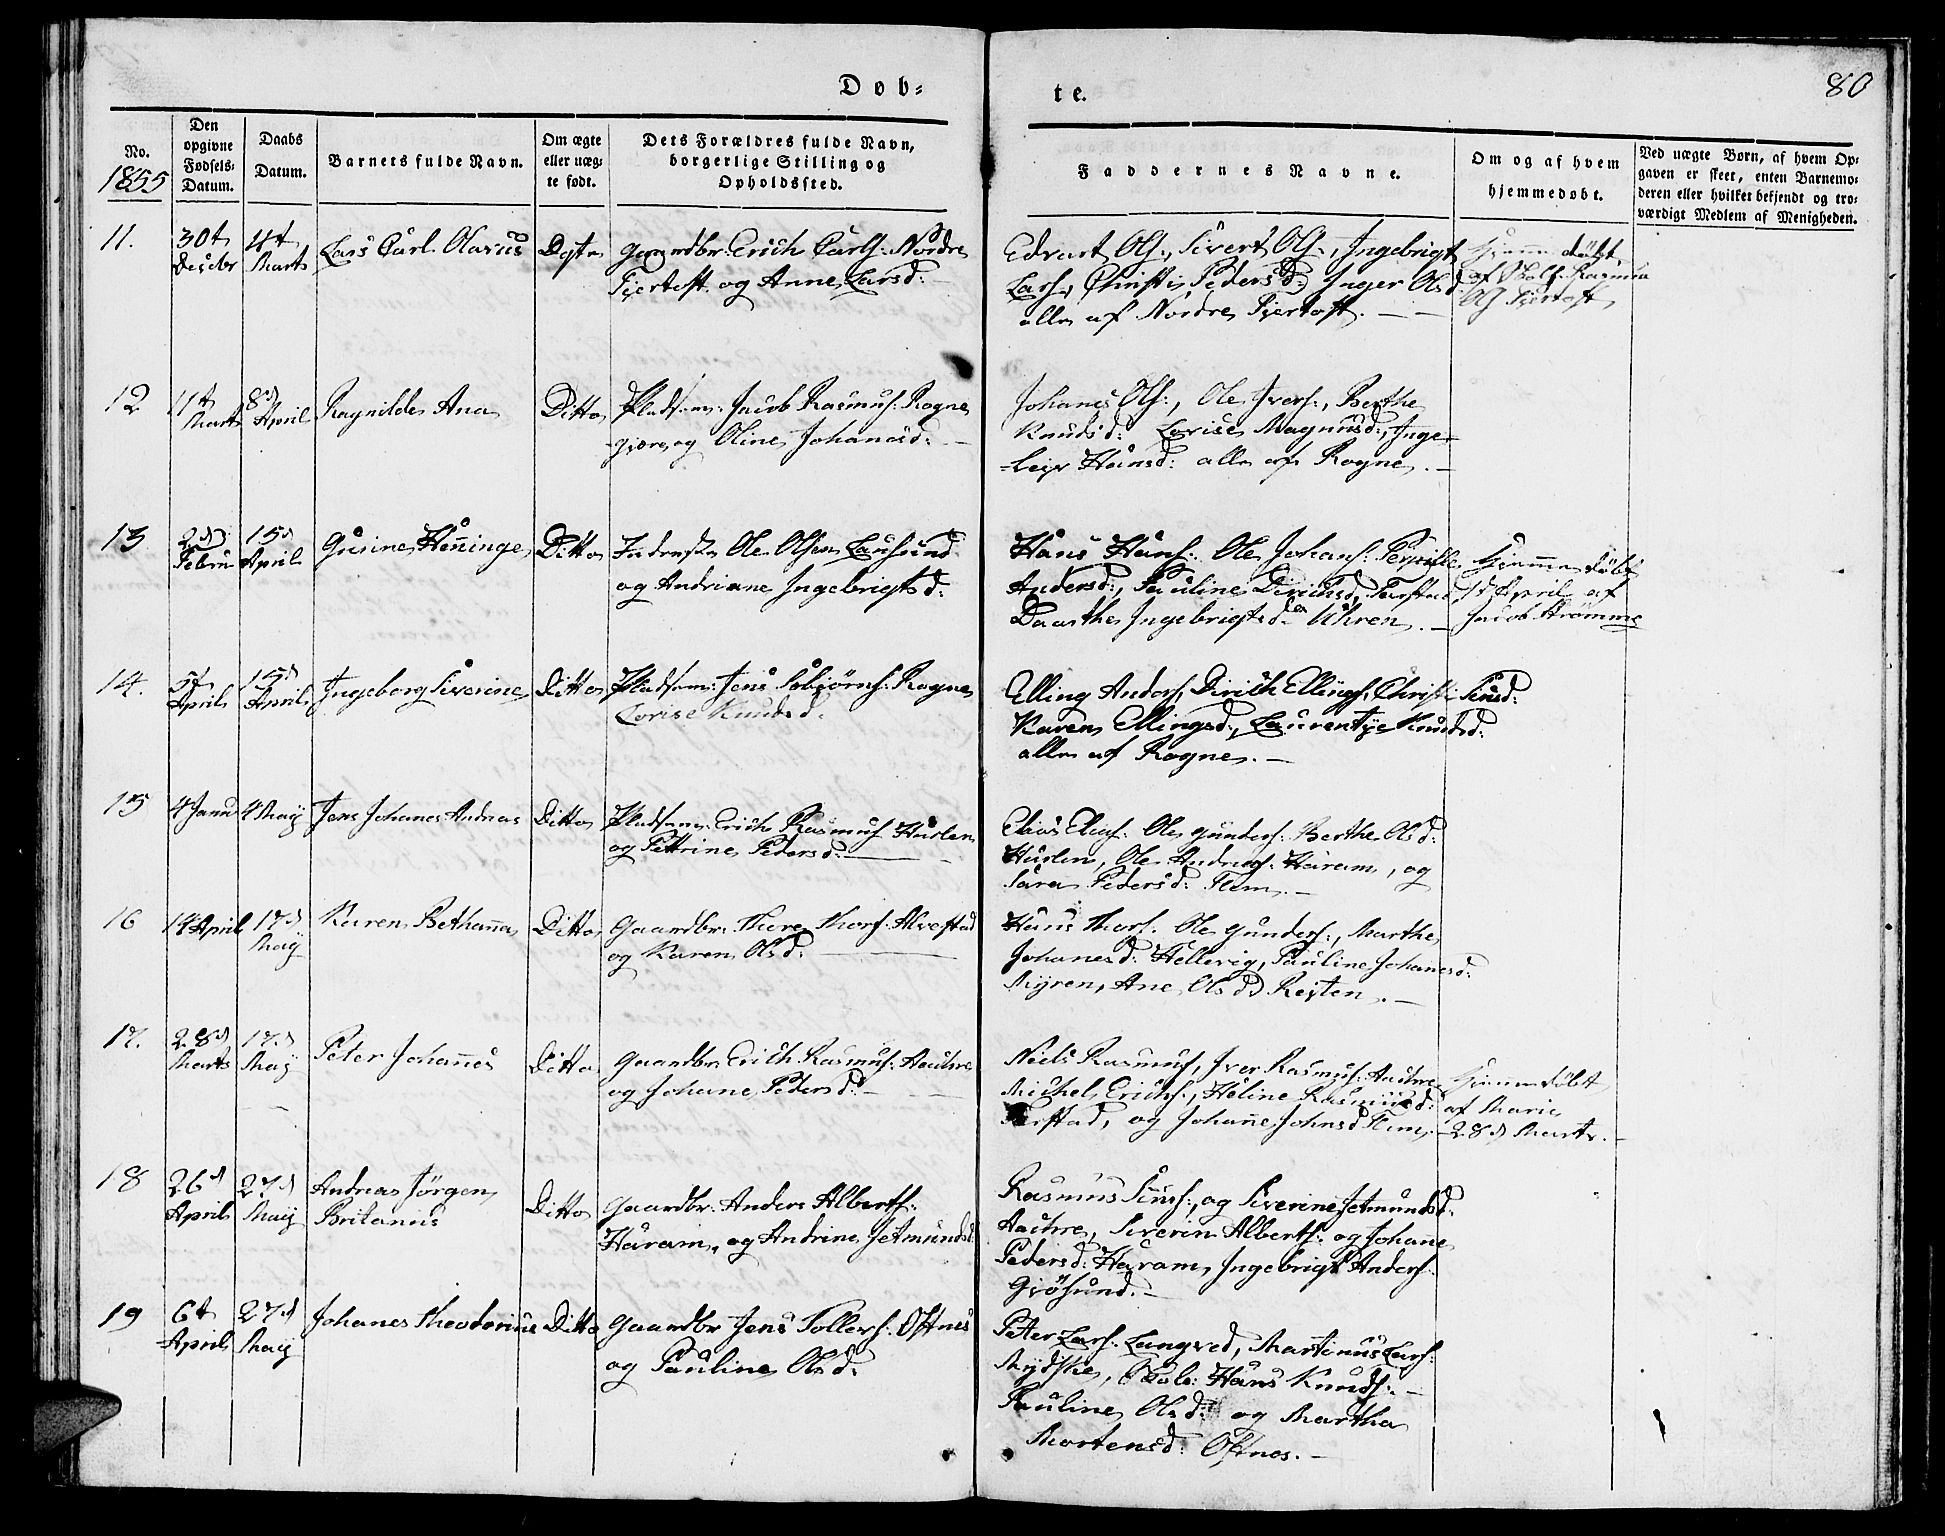 Døb-
te.
80
No.
1855
Den
opgivne
Fødsels-
Datum.
Daabs
Datum.
Barnets fulde Navn.
Om ægte
eller uæg-
te født.
Dets Forældres fulde Navn,
borgerlige Stilling og
Opholdssted.
Faddernes Navne.
Om og af hvem
hjemmedøbt.
Ved uægte Børn, af hvem Op-
gaven er skeet, enten Barnemo-
deren eller hvilket bekjendt og tro-
værdigt Medlem af Menigheden.
11.
30t
Decbr
4t
Marts
Lars Carl Olarus
Gaardbr: Erich Carls: Nordre
Fjertoft og Anne Larsd:
Edvart Ols:, Sivert Ols:, Ingebrigt
Lars:, Christi Pedersd: Inger Olsd:
alle af Nordre Fjertoft.
Hjemmedøbt
af
Fjertoft
12
11t
Marts
8d
April
Ragnilde Ana
Ditto
Pladsm: Jacob Rasmus: Rogne
og Oline Johanesd:
Johanes Ols:, Ole Ivers:, Berthe
Knudsd: Lovise Magnusd:, Inge-
Hansd: alle af Rogne.
13
2d
Febru
15d
April
Gusine Henninge
Ditto
Ole Olsen Lausund
og Andriane Ingebrigtsd:
Hans Hans: Ole Johans: Pernille
Andersd:, Pauline Dirichsd,
Daarthe Ingebrigtsd: Uhren.
Hjemmedøbt
April af
Jacob Strømme
14.
5t
April
15d
April
Ingeborg Siverine
Ditto
Pladsm: Jens Rogne
Lovise Knudsd.
Elling Anders, Dirich Ellings, Christi
Karen Ellingsd:, Laurentze Knudsd:
alle af Rogne.
15
4 Janu
4 May
Jens Johanes Andreas
Ditto
Pladsm: Erich Rasmus Hurlen
og Pettrine Pedersd:
Elias Elias: Ole Gunders: Berthe Olsd:
Hurlen, Ole Andreas: Haram, og
Sara Pedersd: Flem.
16
14 April
17d
May
Karen Bethanna
Ditto
Gaardbr: Thore Thors: Alvestad
og Karen Olsd:
Hans Thors. Ole Gunders:, Marthe
Johanesd: Hellevig, Pauline Johanesd:
Myren, Ane Olsd Reiten.
17.
28d
Marts
17d
May
Peter Johannes
Ditto
Gaardbr: Erich Rasmus: Aaihre
og Johane Pedersd:
Niels Rasmus, Iver Rasmus: Aaihre
Michel Erichs:, Heline Rasmusd:
og Johanne Johnsd Flem.
Hjemmedøbt
af Marie
28d Marts.
18
26d
April
27d
May
Andreas Jørgen
Britanus
Ditto
Gaardbr: Anders Alberts:
Haram, og Andrine Jetmundsd
Rasmus og Siverine Jetmundsd:
Aaihre, Severin Alberts: og Johane
Pedersd: Haram, Ingebrigt Anders:
Gjøsund.
19
6t
April
27d
May
Johanes Theodorius
Ditto
Gaardbr Jens Tollers: Oftnes
og Pauline Olsd:
Peter Lars: Langved, Martinus Lars:
Hans Knuds:
Pauline Olsd: og Martha
Mortensd: Oftnes.